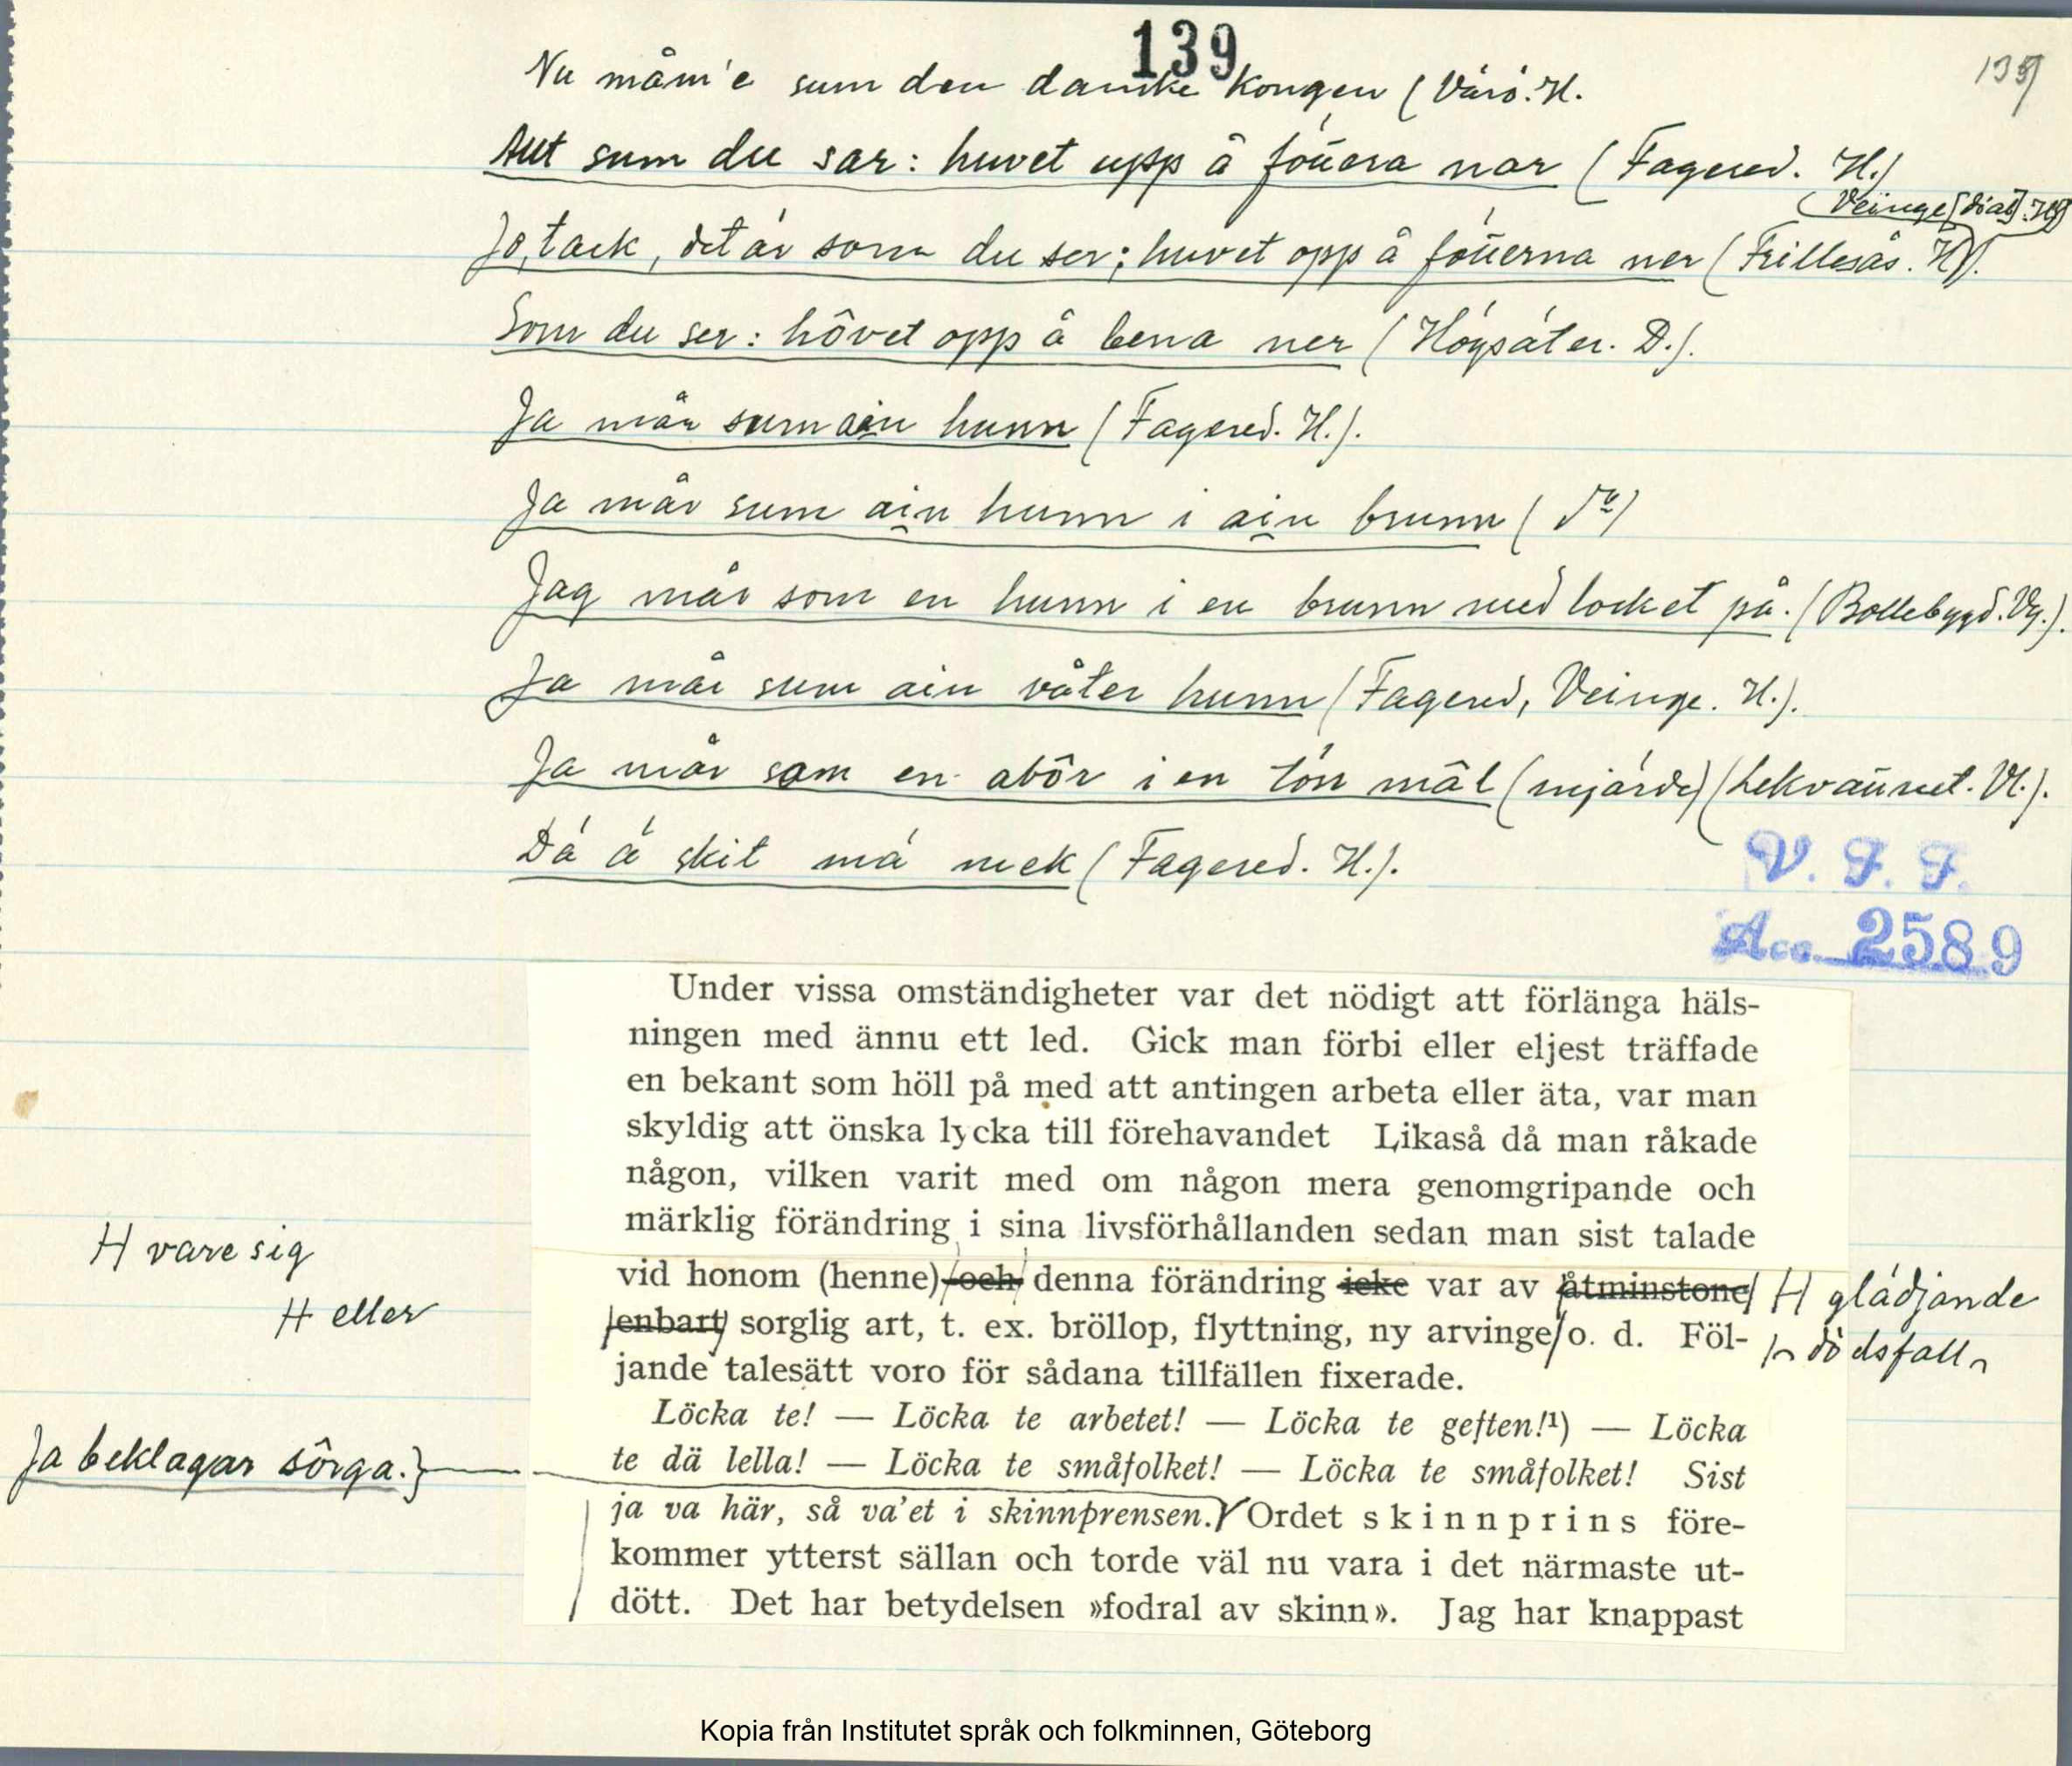 139
139
Nu måm'e sum den danske kongen (Värö. H.
Aut sum du sar: huvet upp å föuera nar (Fagered. H.)
(Veinge [dial]. H.)
Jo, tack, det är som du ser; huvet opp å föuerna ner (Frillesås. H.).
Som du ser: hôvet opp å bena ner (Högsäter. D.).
Ja mår sum ain hunn (Fagered. H.).
Ja mår sum ain hunn i ain brunn (
Jag mår som en hunn i en brunn med locket på. (Bollebygd. Vg.).
Ja mår sum ain våter hunn (Fagered, Veinge. H.).
Ja mår som en abôr i en törr mâl (mjärde) (Lekvattnet. Vl.).
Dä ä skit mä mek (Fagered. H.).
V. F. F.
Acc. 2589
Under vissa omständigheter var det nödigt att förlänga häls-
ningen med ännu ett led. Gick man förbi eller eljest träffade
en bekant som höll på med att antingen arbeta eller äta, var man
skyldig att önska lycka till förehavandet Likaså då man råkade
någon, vilken varit med om någon mera genomgripande och
märklig förändring i sina livsförhållanden sedan man sist talade
H vare sig
vid honom (henne) och denna förändring icke var av åtminstone H glädjande
H eller
enbart sorglig art, t. ex. bröllop, flyttning, ny arvinge o. d. Föl- dödsfall
jande talesätt voro för sådana tillfällen fixerade.
Löcka te! — Löcka te arbetet! — Löcka te geften!¹) — Löcka
te dä lella! — Löcka te småfolket! — Löcka te småfolket! Sist
Ja beklagar sôrga.}
ja va här, så va'et i skinnprensen. Ordet skinnprins före-
kommer ytterst sällan och torde väl nu vara i det närmaste ut-
dött. Det har betydelsen »fodral av skinn». Jag har knappast
Kopia från Institutet språk och folkminnen, Göteborg